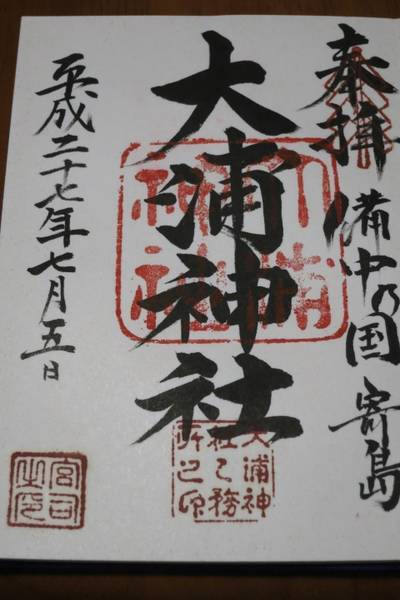 奉拝 備中乃国 寄島
大浦神社
平成二十七年七月五日
大浦
神社
大浦神
社之務
所之印
宮司
之印